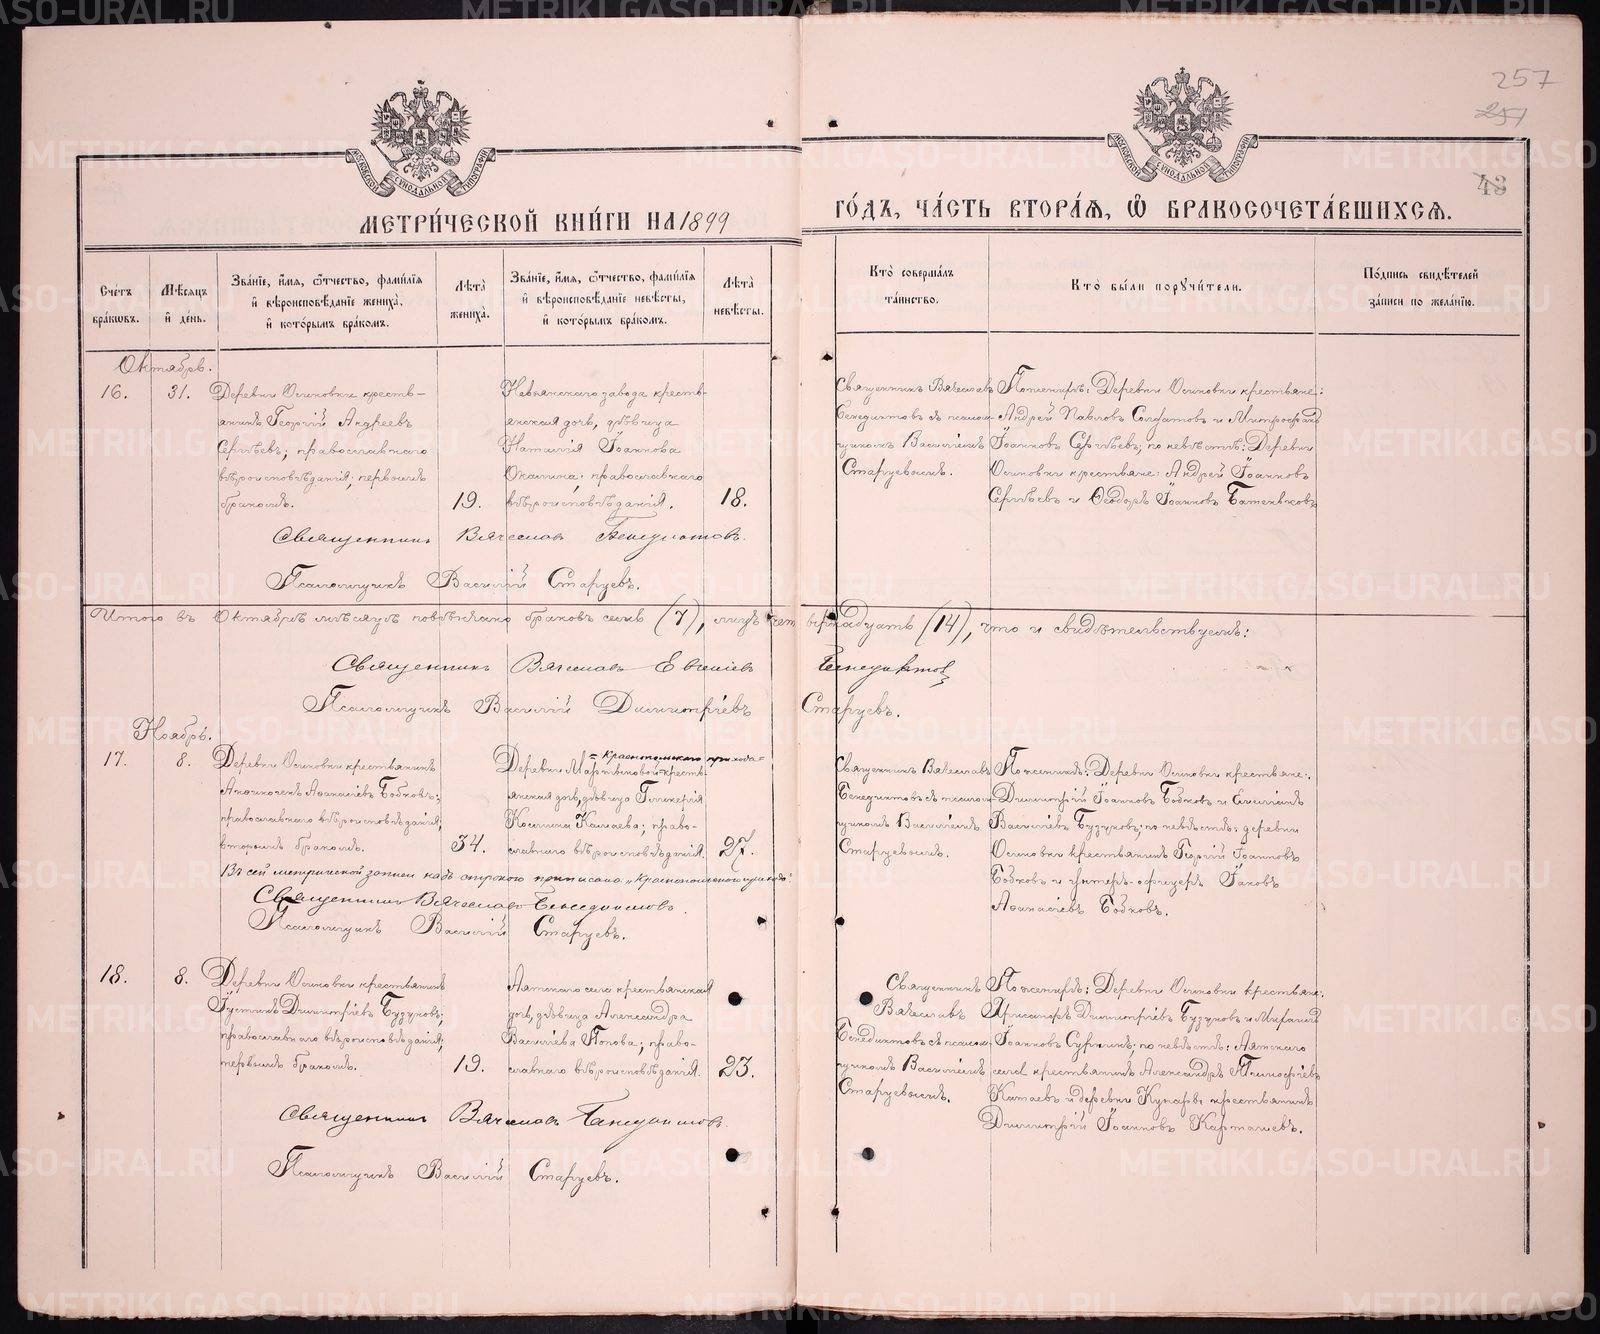 257
251
43
МОСКОВСКОЙ СѴНОДАЛЬНОЙ ТИПОГРАФІИ
МОСКОВСКОЙ СѴНОДАЛЬНОЙ ТИПОГРАФІИ
МЕТРИ́ЧЕСКОЙ КНИ́ГИ НА 1899
ГО́ДЪ, ЧА́СТЬ ВТОРА́Ѧ, Ѽ БРАКОСОЧЕТА́ВШИХСѦ.
Сче́тъ бра́кѡвъ.
Мѣ́сѧцъ и҆ де́нь.
Зва́нїе, и҆́мѧ, ѻ҆́тчество, фами́лїѧ и҆ вѣроисповѣ́данїе жениха̀, и҆ кото́рымъ бра́комъ.
Лѣ́та жениха̀.
Зва́нїе, и҆́мѧ, ѻ҆́тчество, фами́лїѧ и҆ вѣроисповѣ́данїе невѣ́сты, и҆ кото́рымъ бра́комъ.
Лѣ́та невѣ́сты.
Кто̀ соверша́лъ та́инство.
Кто̀ бы́ли порꙋчи́тели.
По́дпись свидѣ́телей за́писи по жела́нїю.
Октябрь.
16.
31.
Деревни Осиновки кресть-
янинъ Георгій Андреевъ
Сергѣевъ; православнаго
вѣроисповѣданія; первымъ
бракомъ.
19.
Невьянскаго завода кресть-
янская дочь, дѣвица
Наталія Іоаннова
православнаго
вѣроисповѣданія.
18.
Священникъ Вячеславъ
Бенедиктовъ съ псалом-
щикомъ Василіемъ
Старцевымъ.
По женихѣ: Деревни Осиновки крестьяне:
Андрей Павловъ Солдатовъ и Митрофанъ
Іоанновъ Сергѣевъ; по невѣстѣ: Деревни
Осиновки крестьяне: Андрей Іоанновъ
Сергѣевъ и Ѳеодоръ Іоанновъ Батеньковъ
Священникъ Вячеславъ Бенедиктовъ.
Псаломщикъ Василій Старцевъ.
Итого въ Октябрѣ мѣсяцѣ повѣнчано браковъ семь (7), лицъ четырнадцать (14), что и свидѣтельствуемъ:
Священникъ Вячеславъ Евгеніевъ Бенедиктов
Псаломщикъ Василій Димитріевъ Старцевъ.
Ноябрь.
17.
8.
Деревни Осиновки крестьянинъ
Аѳанасіевъ Бобковъ;
православнаго вѣроисповѣданія;
вторымъ бракомъ.
34.
= Краснопольскаго прихода =
Деревни Мартьяновой кресть-
янская дочь, дѣвица Гликерія
Косьмина Камаева; право-
славнаго вѣроисповѣданія.
27.
Священникъ Вячеславъ
Бенедиктовъ съ псалом-
щикомъ Василіемъ
Старцевымъ.
По женихѣ: Деревни Осиновки крестьяне:
Димитрій Іоанновъ Бобковъ и Емиліанъ
Василіевъ Бузуновъ; по невѣстѣ: деревни
Осиновки крестьянинъ Георгій Іоанновъ
Бобковъ и унтеръ-офицеръ Іаковъ
Аѳанасіевъ Бобковъ.
Въ сей метрической записи надъ строкою приписано „Краснопольскаго прихода“.
Священникъ Вячеславъ Бенедиктовъ.
Псаломщикъ Василій Старцевъ.
18.
8.
Деревни Осиновки крестьянинъ
Іустинъ Димитріевъ Бузуновъ;
православнаго вѣроисповѣданія;
первымъ бракомъ.
19.
Аятскаго села крестьянская
дочь, дѣвица Александра
Василіева Попова; право-
славнаго вѣроисповѣданія.
23.
Священникъ
Вячеславъ
Бенедиктовъ съ псалом-
щикомъ Василіемъ
Старцевымъ.
По женихѣ: Деревни Осиновки крестьяне:
Димитріевъ Бузуновъ и Михаилъ
Іоанновъ Сурнинъ; по невѣстѣ: Аятскаго
села крестьянинъ Александръ Тимоѳеевъ
Китаевъ и деревни Кунары крестьянинъ
Димитрій Іоанновъ Карташевъ.
Священникъ Вячеславъ Бенедиктовъ.
Псаломщикъ Василій Старцевъ.
METRIKI.GASO-URAL.RU